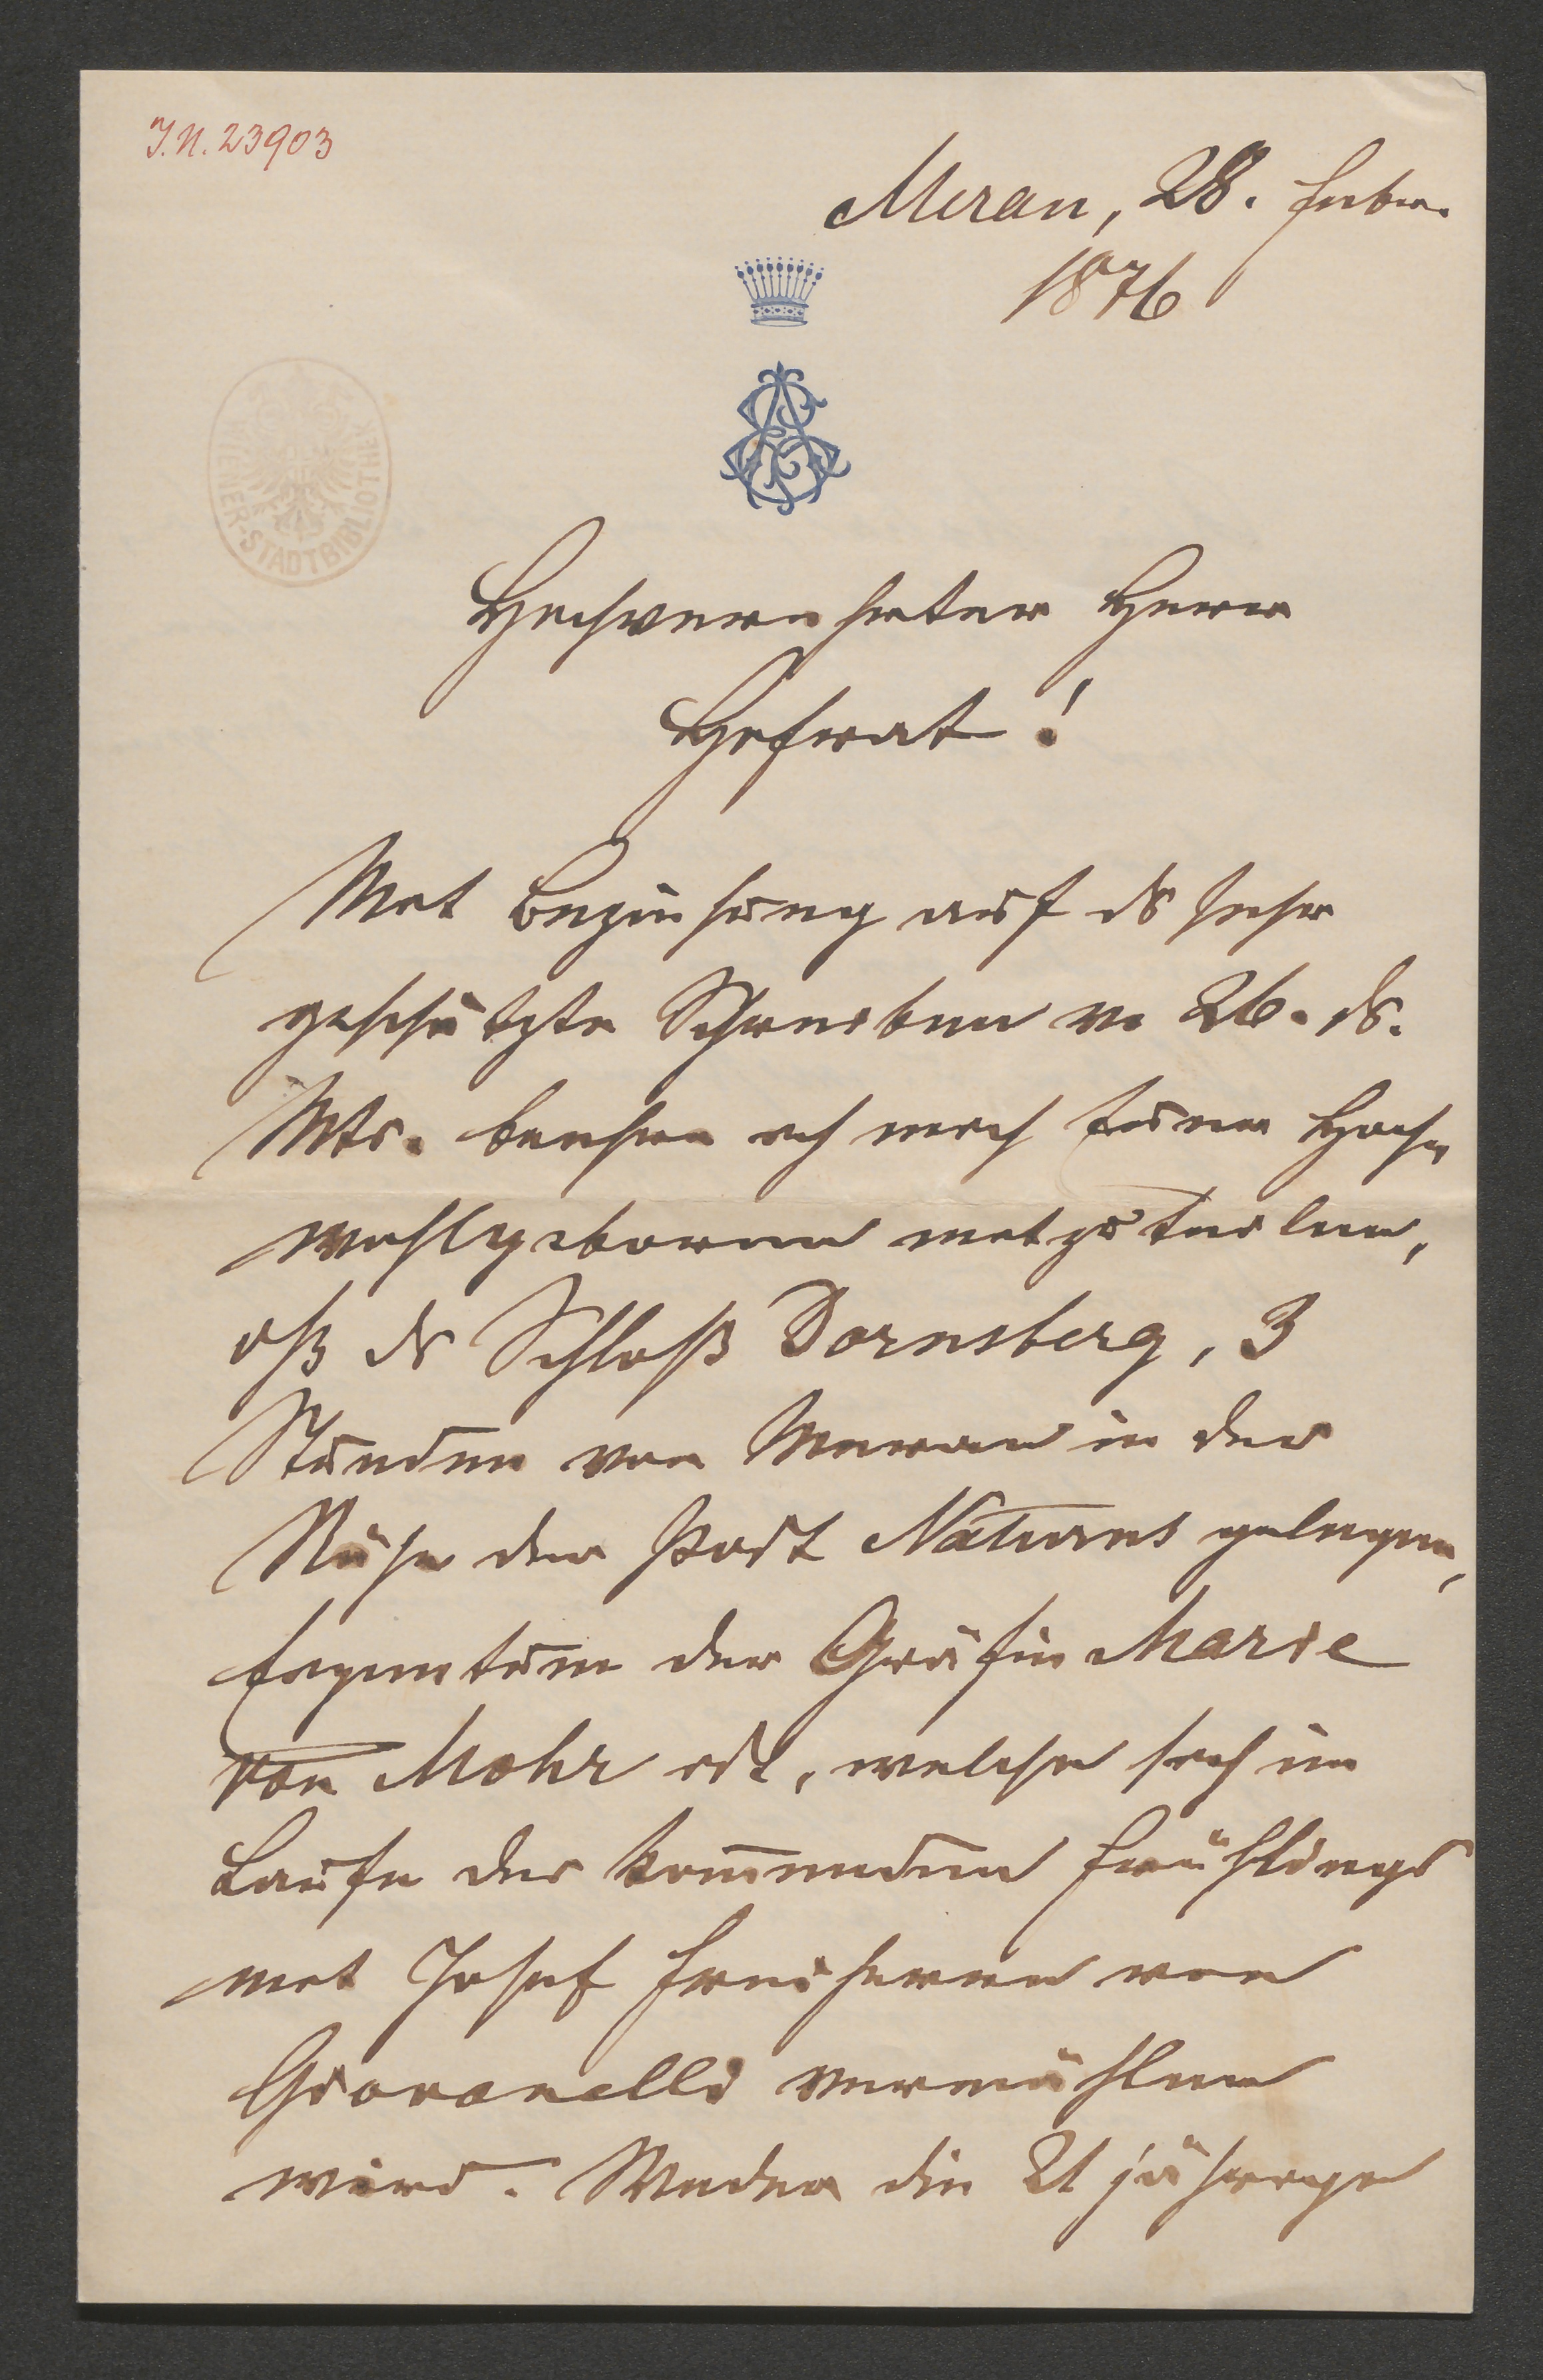 J.N. 23903
Meran, 28. Febr.
1876
WIENER-STADTBIBLIOTHEK
Hochverehrter Herr
Hofrat!
Mit Beziehung auf ds sehr
geschätzte Schreiben v. 26. ds.
Mts. beehre ich mich Euer Hoch-
wohlgeboren mitzuteilen,
dß ds Schloß Dornsberg, 3
Stunden von Meran in der
Nähe der Post Naturns gelegen,
Eigentum der Gräfin Marie
von Mohr ist, welche sich im
Laufe des kommenden Frühlings
mit Josef Freiherrn von
Giovanelli vermählen
wird. Weder die 21 jährige